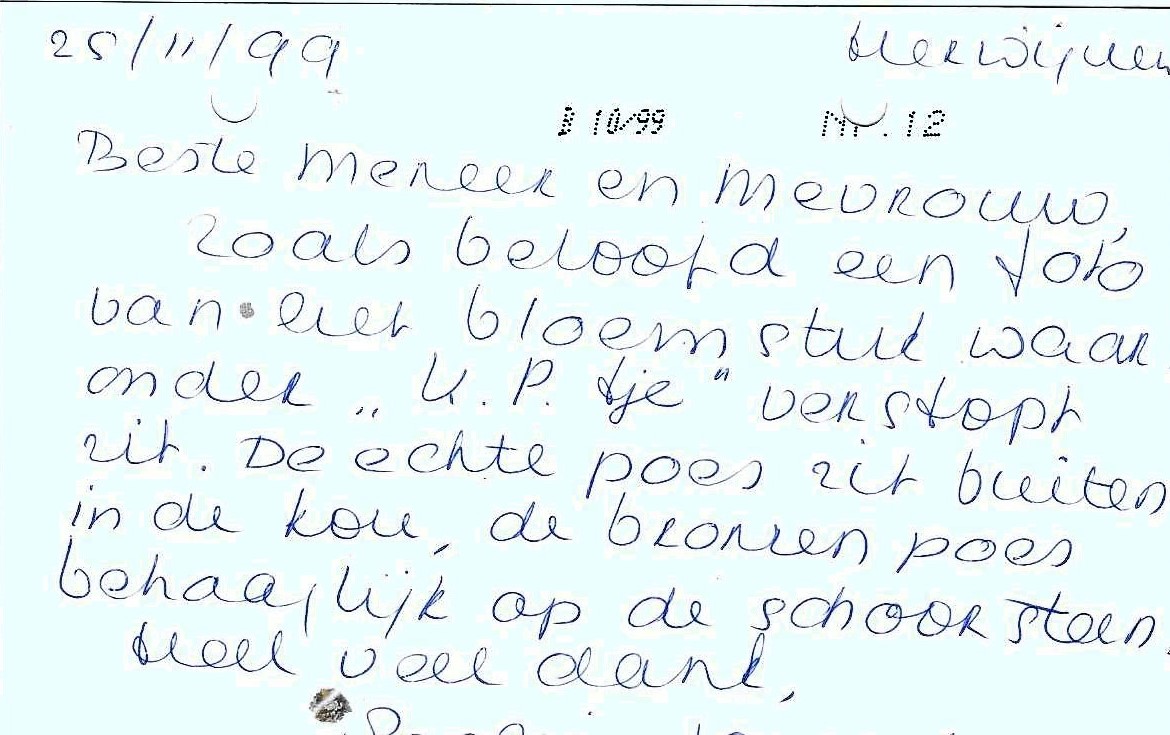 25/11/99 Herwijnen
B 10/99 Nr. 12
Beste meneer en mevrouw,
zoals beloofd een foto
van het bloemstuk waar
onder „K.P. tje" verstopt
zit. De echte poes zit buiten
in de kou, de bronzen poes
behaaglijk op de schoorsteen.
Heel veel dank,